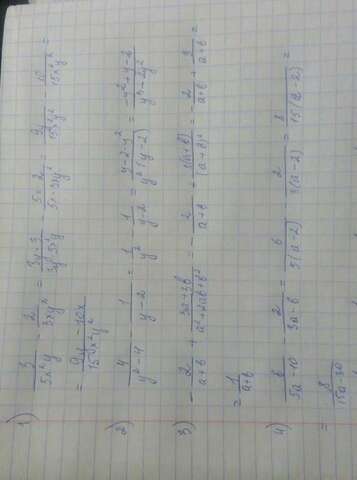 1) 3/(5x²y) - 2/(3xy²) = (3y·3)/(3y·5x²y) - (5x·2)/(5x·3xy²) = 9y/(15x²y²) - 10/(15x²y²) =
= (9y - 10x)/(15x²y²)
2) 4/(y²-4) - 1/(y-2) = 1/y² - 1/(y-2) = (y-2-y²)/(y²(y-2)) = (-y²+y-2)/(y³-2y²)
3) -2/(a+b) + (3a+3b)/(a²+2ab+b²) = -2/(a+b) + 3(a+b)/(a+b)² = -2/(a+b) + 3/(a+b) =
= 1/(a+b)
4) 6/(5a-10) - 2/(3a-6) = 6/(5(a-2)) - 2/(3(a-2)) = 8/(15(a-2)) =
= 8/(15a-30)